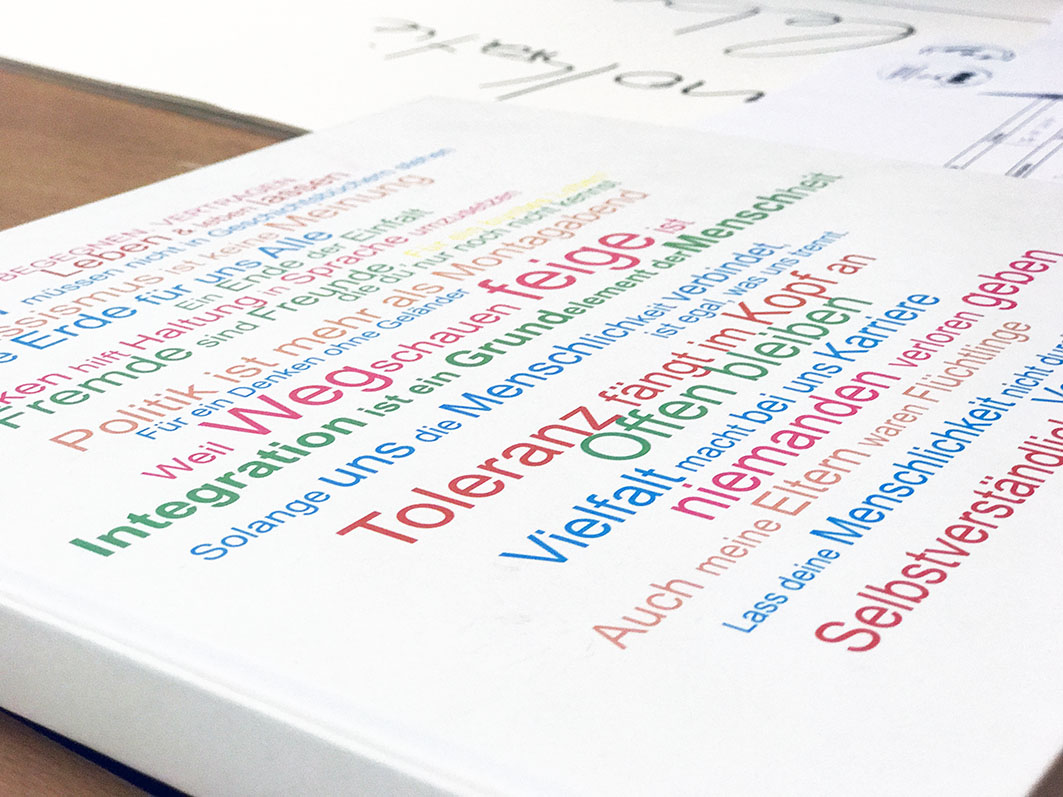 BEGEGNEN VERTRAGEN
Leben & leben lassen
müssen nicht in Geschichtsbüchern stehen
ssismus ist keine Meinung
e Erde für uns Alle
Ein Ende der Einfalt
ken hilft Haltung in Sprache umzusetzen
Fremde sind Freunde
die du nur noch nicht kennst
Politik ist mehr als Montagabend
Für ein Denken ohne Geländer
Weil Wegschauen feige ist
Integration ist ein Grundelement der Menschheit
Solange uns die Menschlichkeit verbindet,
ist egal, was uns trennt.
Toleranz fängt im Kopf an
Offen bleiben
Vielfalt macht bei uns Karriere
niemanden verloren geben
Auch meine Eltern waren Flüchtlinge
Lass deine Menschlichkeit nicht
Selbstverständlich